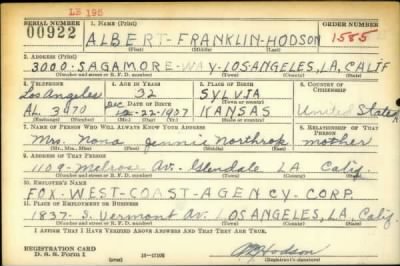 LB 195
SERIAL NUMBER 1. NAME (Print) ORDER NUMBER
00922 ALBERT - FRANKLIN - HODSON 1585
(First) (Middle) (Last)
2. ADDRESS (Print)
3000 - SAGAMORE - WAY - LOS ANGELES, LA, CALIF
(Number and street or R. F. D. number) (Town) (County) (State)
3. TELEPHONE 4. AGE IN YEARS 5. PLACE OF BIRTH 6. COUNTRY OF CITIZENSHIP
Los Angeles 32 SYLVIA
DATE OF BIRTH (Town or county)
AL 3970 Dec 12-22-1907 KANSAS United States
(Exchange) (Number) (Mo.) (Day) (Yr.) (State or country)
7. NAME OF PERSON WHO WILL ALWAYS KNOW YOUR ADDRESS 8. RELATIONSHIP OF THAT PERSON
Mrs. Nona Jennie Northrop mother
(Mr., Mrs., Miss) (First) (Middle) (Last)
9. ADDRESS OF THAT PERSON
1109 - Melrose Av. - Glendale LA Calif.
(Number and street or R. F. D. number) (Town) (County) (State)
10. EMPLOYER'S NAME
FOX - WEST - COAST - AGENCY - CORP.
11. PLACE OF EMPLOYMENT OR BUSINESS
1837 - S. Vermont Av. LOS ANGELES, LA, Calif.
(Number and street or R. F. D. number) (Town) (County) (State)
I AFFIRM THAT I HAVE VERIFIED ABOVE ANSWERS AND THAT THEY ARE TRUE.
REGISTRATION CARD
D. S. S. Form 1 16-17105 Hodson
(Registrant's signature)